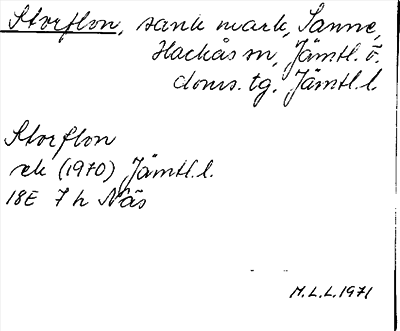 Storflon, sank mark, Sanne,
Hackås sn, Jämtl. ö.
doms. tg, Jämtl. l.
Storflon
ek (1970) Jämtl. l.
18E 7 h Näs
M.L.L. 1971